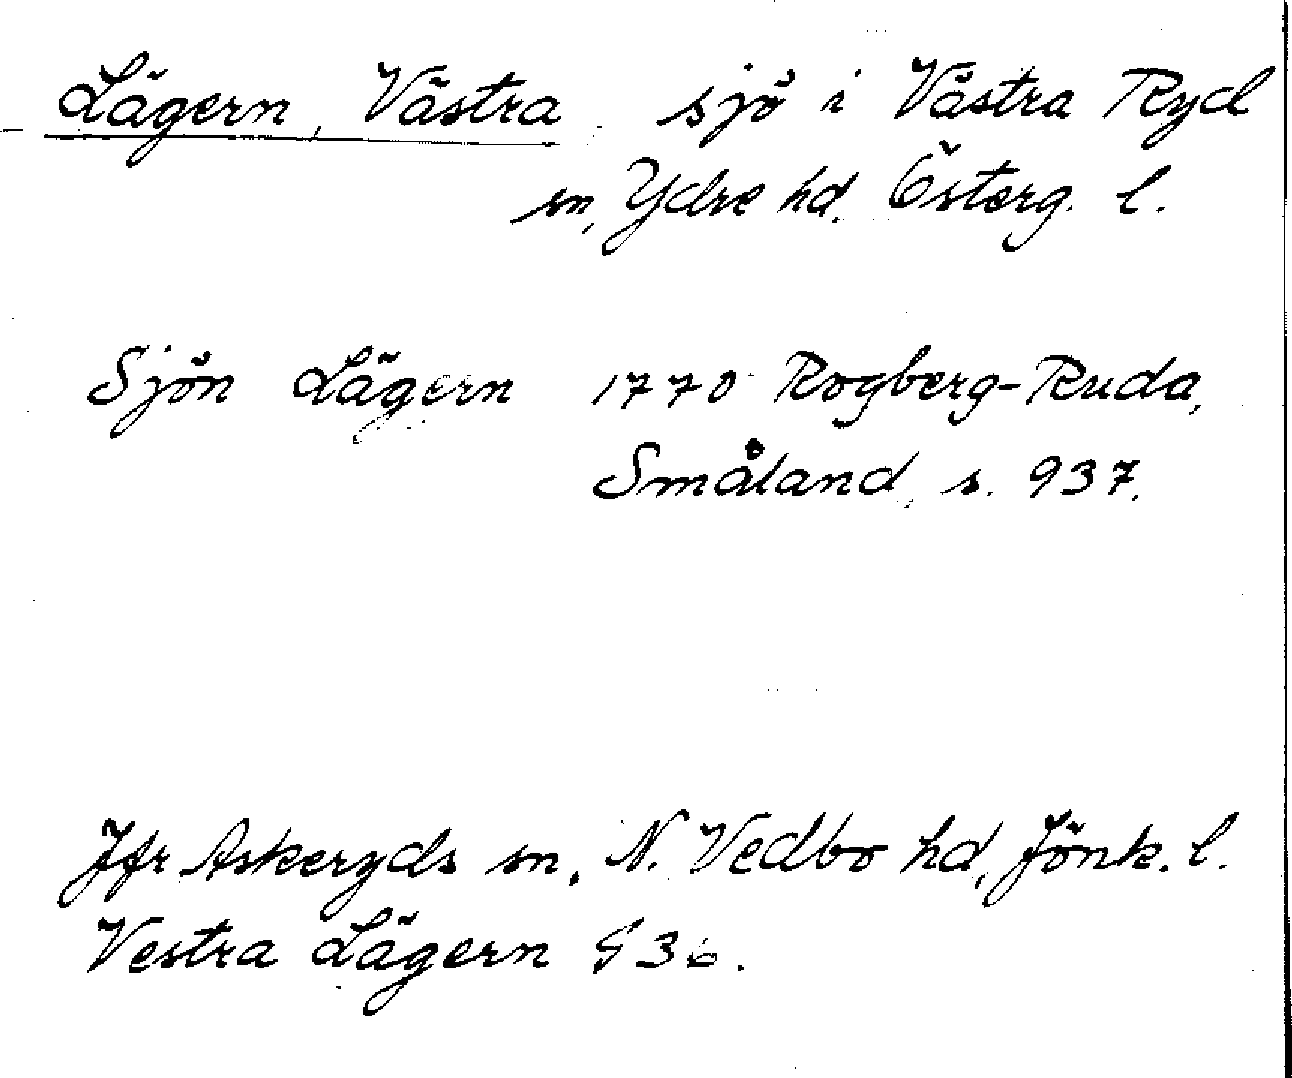 Lägern, Västra, sjö i Västra Ryd
sn, Ydre hd. Österg. l.
Sjön Lägern 1770 Rogberg-Ruda,
Småland, s. 937.
Jfr Askeryds sn, N. Vedbo hd, Jönk. l.
Vestra Lägern 936.